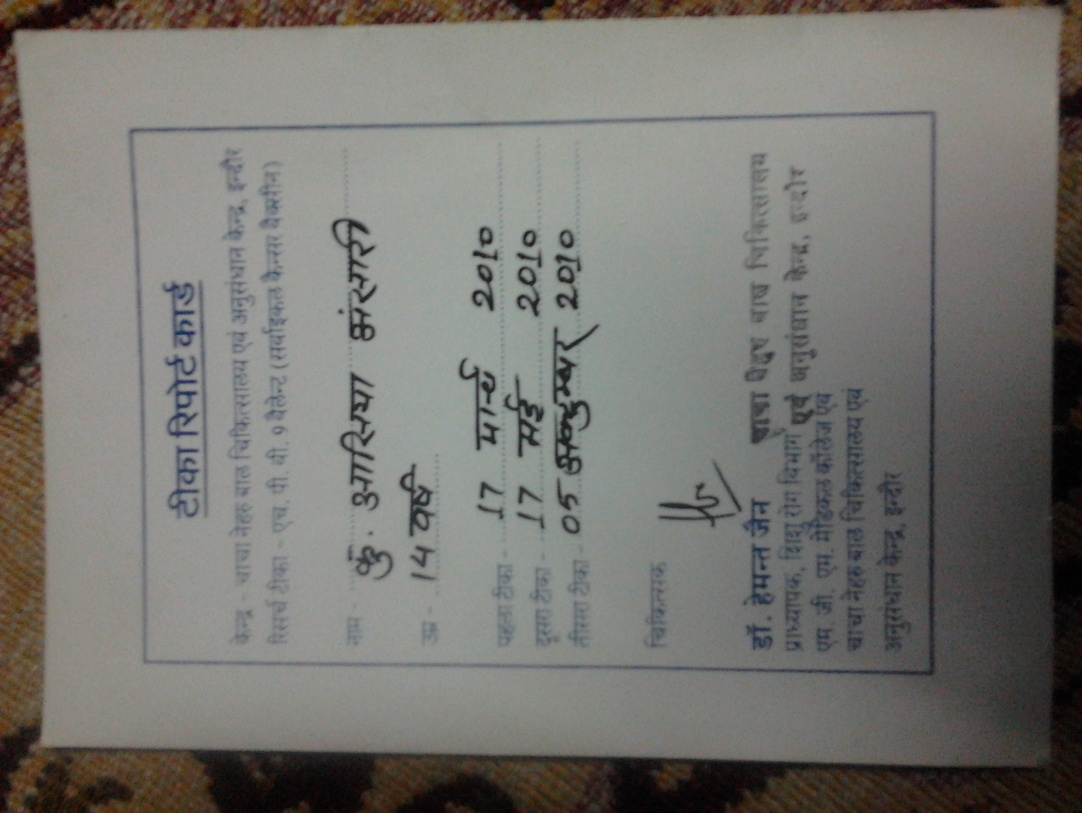 टीका रिपोर्ट कार्ड
केन्द्र - चाचा नेहरू बाल चिकित्सालय एवं अनुसंधान केन्द्र, इन्दौर
रिसर्च टीका - एच. पी. वी. 9 वैलेन्ट (सर्वाइकल कैन्सर वैक्सीन)
नाम - कु. आसिया अंसारी
उम्र - 14 वर्ष
पहला टीका - 17 मार्च 2010
दूसरा टीका - 17 मई 2010
तीसरा टीका - 05 अक्टुम्बर 2010
चिकित्सक
डॉ. हेमन्त जैन
प्राध्यापक, शिशु रोग विभाग
एम. जी. एम. मेडिकल कॉलेज एवं
चाचा नेहरू बाल चिकित्सालय एवं
अनुसंधान केन्द्र, इन्दौर
चाचा नेहरू बाल चिकित्सालय
एवं अनुसंधान केन्द्र, इन्दौर